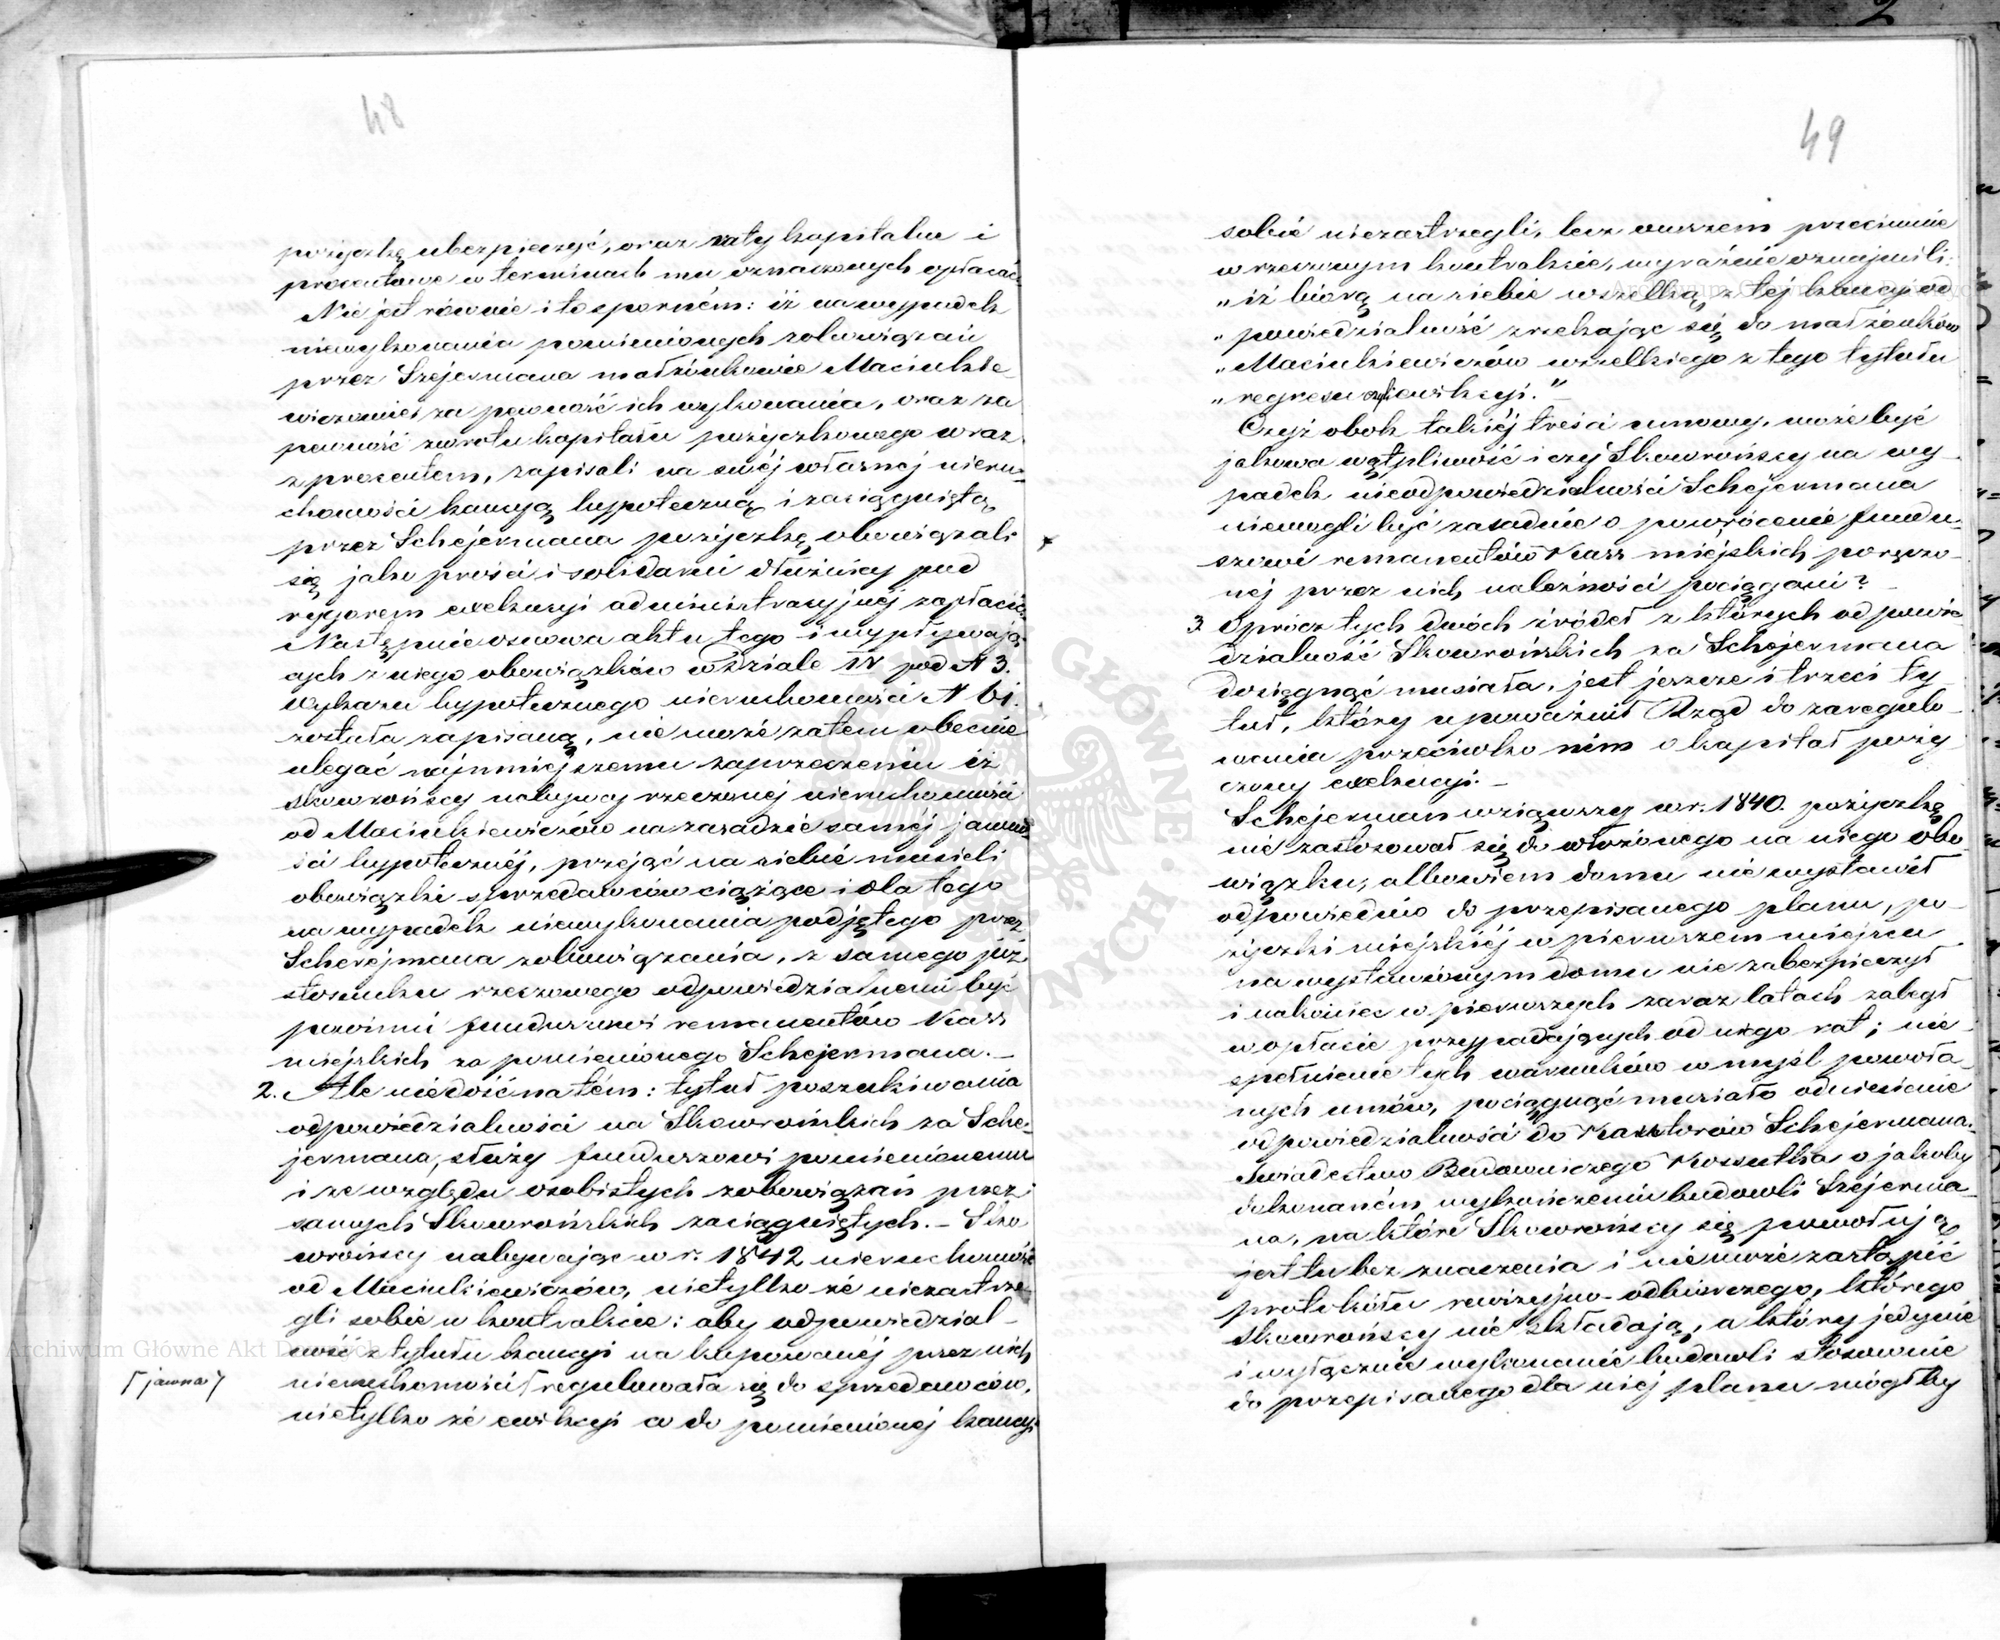 48
pożyczkę ubezpieczyć, oraz raty kapitału i
procentowe w terminach mu oznaczonych opłacać.
Nie jest równie i to sporném: iż na wypadek
niewykonania pomienionych zobowiązań
przez Szejermana małżonkowie Maciulkie-
wiczowie za pewność ich wykonania, oraz za
pewność zwrotu kapitału pożyczkowego wraz
z procentem, zapisali na swéj własnej nieru-
chomości kaucyą hypoteczną i zaciągniętą
przez Schejermana pożyczkę obowiązali
się jako prości i solidarni dłużnicy pod
rygorem exekucyi administracyjnéj zapłacić.
Następnie osnowa aktu tego i wypływają-
cych z niego obowiązków w dziale IV pod N 3.
wykazu hypotecznego nieruchomości N 61.
została zapisaną, nie może zatem obecnie
ulegać najmniejszemu zaprzeczeniu iż
Skowrońscy nabywcy rzeczonej nieruchomości
od Maciulkiewiczów na zasadzie saméj jawno-
ści hypotecznéj, przejąć na siebie musieli
obowiązki sprzedawców ciążące i dla tego
na wypadek niewykonania podjętego przez
Scherejmana zobowiązania, z samego już
stosunku rzeczowego odpowiedzialnemi być
powinni funduszowi remanentów Kass
miejskich za pomienionego Schejermana. —
2. Ale niedość na tém: tytuł poszukiwania
odpowiedzialności na Skowrońskich za Sche-
jermana, służy funduszowi pomienionemu
i ze względu osobistych zobowiązań przez
samych Skowrońskich zaciągniętych. — Sko-
wrońscy nabywając w r. 1842 nieruchomość
od Maciulkiewiczów, nietylko że niezastrze-
gli sobie w kontrakcie: aby odpowiedzial-
ność z tytułu kaucyi na kupowanéj przez nich
nieruchomości ⌈ regulowała się do sprzedawców,
⌈ jawna ⌉
nietylko że ewikcyi co do pomienionej kaucyi
49
sobie niezastrzegli, lecz owszem przeciwnie
w rzeczonym kontrakcie, wyraźnie oznajmili:
„iż biorą na siebie wszelką z tej kaucyi od-
„powiedzialność zrzekając się do małżonków
„Maciulkiewiczów wszelkiego z tego tytułu
„regresu czyli ewikcyi.” —
Czyż obok takiéj treści umowy, może być
jakowa wątpliwość i czy Skowrońscy na wy-
padek nieodpowiedzialności Schejermana
niemogli być zasadnie o powrócenie fundu-
szowi remanentów Kass miejskich poręczo-
nej przez nich należności pociągani? —
3. Oprócz tych dwóch źródeł z których odpowie-
dzialność Skowrońskich za Schejermana
dosięgnąć musiała, jest jeszcze i trzeci ty-
tuł, który upoważnił Rząd do zaregulo-
wania przeciwko nim o kapitał poży-
czony exekucyi. —
Schejerman wziąwszy w r. 1840. pożyczkę
nie zastosował się do włożonego na niego obo-
wiązku, albowiem domu nie wystawił
odpowiednio do przepisanego planu, po-
życzki miejskiéj w pierwszem miejscu
na wystawionym domu nie zabezpieczył
i nakoniec w pierwszych zaraz latach zaległ
w opłacie przypadających od niego rat; nie-
spełnienie tych warunków w myśl powoła-
nych umów, pociągnąć musiało odniesienie
odpowiedzialności do Kautorów Schejermana.
Świadectwo Budowniczego Kossutha o jakoby
dokonaném wykończeniu budowli Szejerma-
na, na które Skowrońscy się powołują
jest tu bez znaczenia i nie może zastąpić
protokółu rewizyjno-odbiorczego, którego
Skowrońscy nie składają, a który jedynie
i wyłącznie wykonanie budowli stosownie
do przepisanego dla niéj planu mógłby